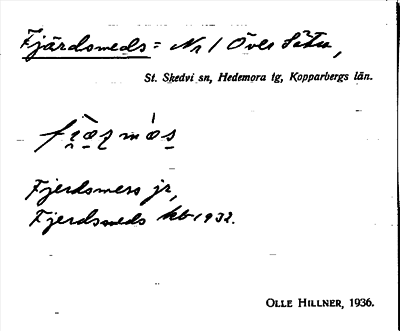 Fjärdsmeds = Nr 1 Över Sätra,
St. Skedvi sn, Hedemora tg, Kopparbergs län.
Fjerdsmess jr,
Fjerdsmeds kb 1932.
OLLE HILLNER, 1936.